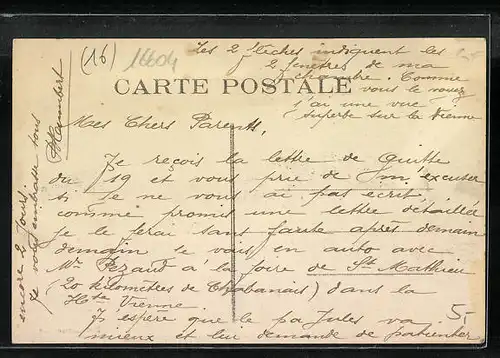 (16)
16604
Les 2 flèches indiquent les
2 fenêtres de ma
chambre. Comme
vous le voyez
j'ai une vue
superbe sur la Vienne
CARTE POSTALE
Mes Chers Parents,
Je reçois la lettre de
du 19 et vous prie de m'excuser
si je ne vous ai pas écrit
comme promis une lettre détaillée
je le ferai sans faute après demain
demain je vais en auto avec
Mr Pezaud à la foire de St Mathieu
(20 kilomètres de Chabanais) dans la
Hte Vienne
J'espère que le pa Jules va
mieux et lui demande de patienter
encore 2 jours.
Je vous embrasse tous
5,